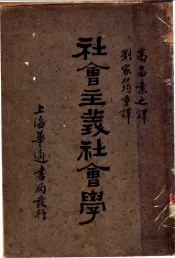 高畠素之譯
劉家筠重譯
社會主義社會學
上海華通書局發行